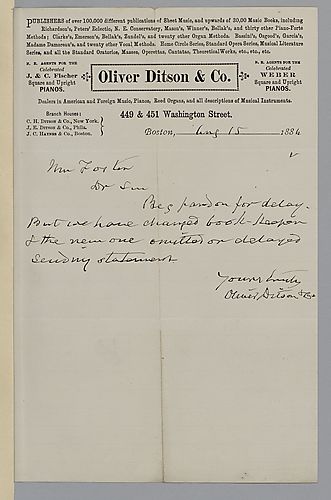 PUBLISHERS of over 100,000 different publications of Sheet Music, and upwards of 20,00 Music Books, including
Richardson's, Peters' Eclectic, N. E. Conservatory, Mason's, Winner's, Bellak's, and thirty other Piano-Forte
Methods; Clarke's, Emerson's, Bellak's, Zundel's, and twenty other Organ Methods. Bassini's, Osgood's, Garcia's,
Madame Damoreau's, and twenty other Vocal Methods. Home Circle Series, Standard Opera Series, Musical Literature
Series, and all the Standard Oratorios, Masses, Operettas, Cantatas, Theoretical Works, etc., etc., etc.
N. E. AGENTS FOR THE
Celebrated
J. & C. Fischer
Square and Upright
PIANOS.
Oliver Ditson & Co.
N. E. AGENTS FOR THE
Celebrated
WEBER
Square and Upright
PIANOS.
Dealers in American and Foreign Music, Pianos, Reed Organs, and all descriptions of Musical Instruments.
Branch Houses:
C. H. DITSON & CO., New York.
J. E. DITSON & CO., Phila.
J. C. HAYNES & CO., Boston.
449 & 451 Washington Street.
Boston, Aug 15 1884
Mr Foster
Dr Sir
Beg pardon for delay.
But we have changed book-keeper
& the new one omitted or delayed
sending statement
Yours truly
Oliver Ditson & Co